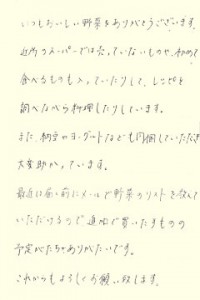 いつもおいしい野菜をありがとうございます。
近所のスーパーでは売っていないものや、初めて
食べるものも入っていたりして、レシピを
調べながら料理したりしています。
また、納豆やヨーグルトなども同梱していただき
大変助かっています。
最近は届く前にメールで野菜のリストを送って
いただけるので追加で買いたすものの
予定がたちありがたいです。
これからもよろしくお願い致します。